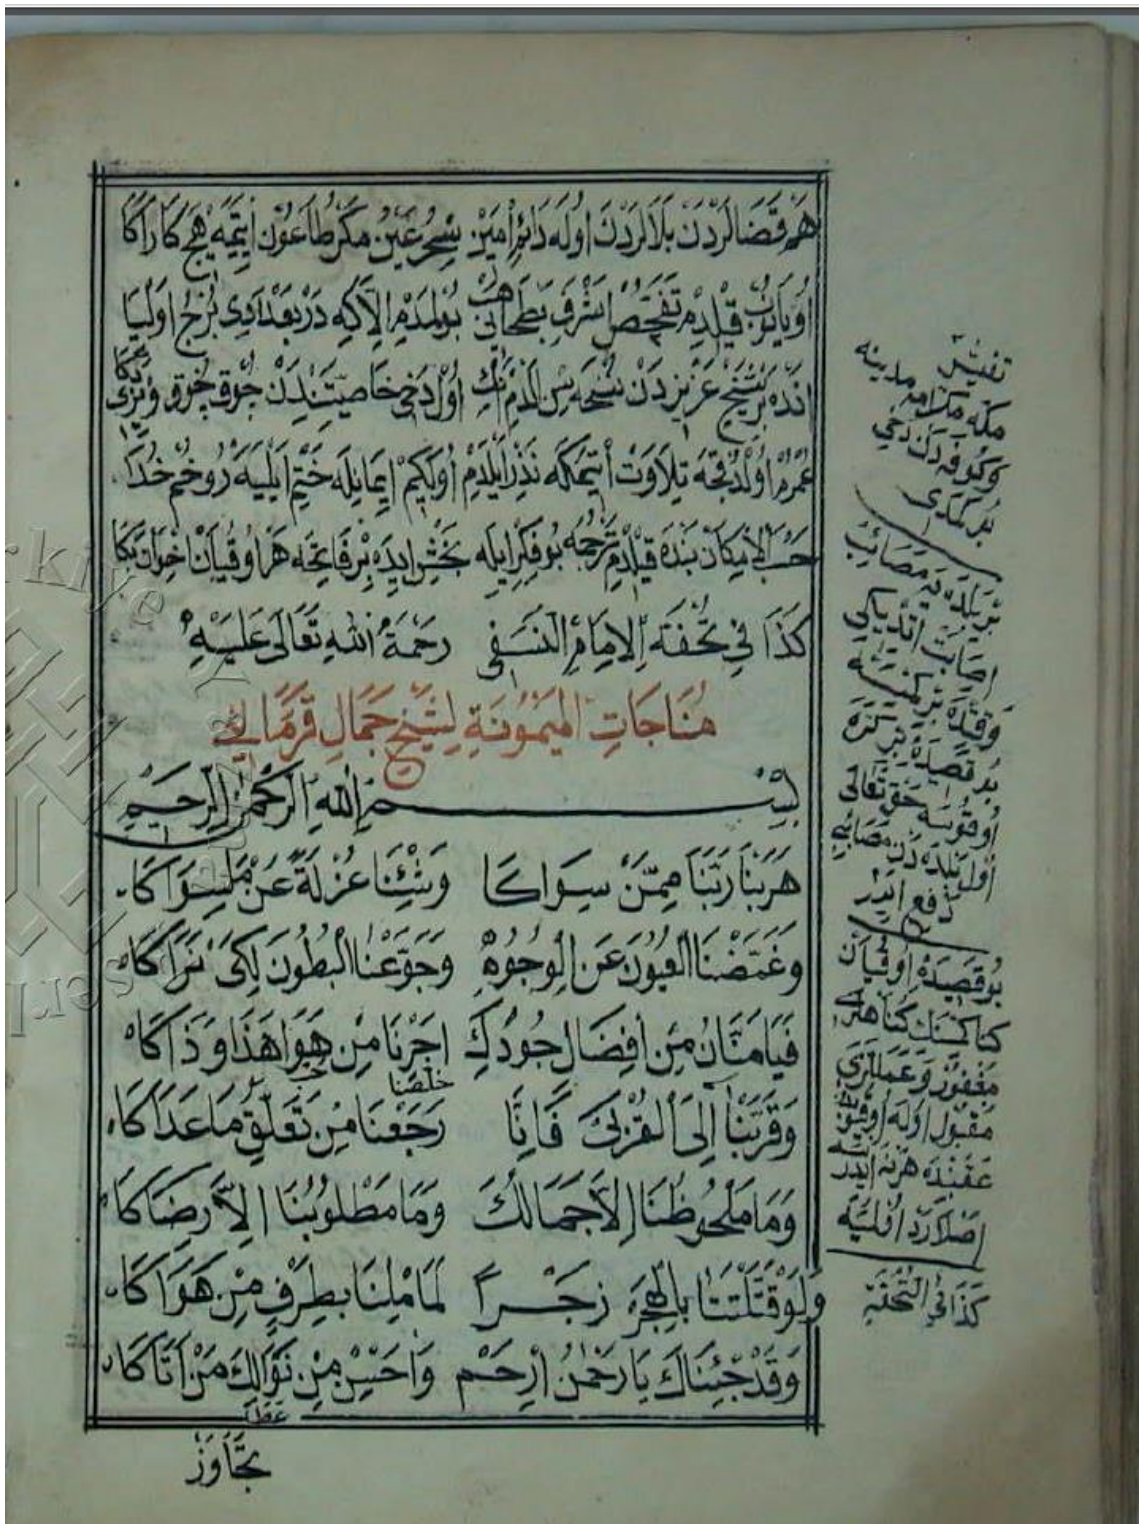 هَرْ قَضَالَرْدَنْ بَلَالَرْدَنْ اُولَه دَائِمْ اَمِينْ سِحْرُ عَيْنُ مَكْرُ طَاعُونْ اِيتْمَيَه هِيچْ كَارْ اَكَا
اُويَانُوبْ قِيلْدِمْ تَفَحُّصْ اَشْرَفِ بَطْحَايِى هَبْ بُولْمَدِمْ اِلَّاكِه دَرْ بَغْدَادِى بُرْجُ اَوْلِيَا
اَنْدَه بِرْ شَيْخِ عَزِيزْدَنْ نُسْخَه سِنْ الْدِمْ اَنِكْ اُولْ دَخِى خَاصِيَّتِنْدَنْ چُوقْ چُوقْ وِيرْدِى بَكَا
عُمْرُمْ اُولْدُقْجَه تِلَاوَتْ اِيتْمَكَه نَذْرْ اَيْلَدِمْ اُولَكِيمْ اِيمَانِلَه خَتْمْ اَيْلَيَه رُوحُمْ خُدَا
حَسَبَ الْاِمْكَانْ بَنْدَه قِيلْدِمْ تَرْجُمَه بُو فِكْرْ اِيلَه بَخْشْ اِيدَه بِرْ فَاتِحَه هَرْ اُوقُيَانْ اِخْوَانْ بَكَا
كَذَا فِي تُحْفَةِ الْاِمَامِ النَّسَفِي رَحْمَةُ اللهِ تَعَالَى عَلَيْهِ
مُنَاجَاتِ الْمَيْمُونَةِ لِشَيْخِ جَمَالِ قَرَمَانِي
بِسْمِ اللهِ الرَّحْمٰنِ الرَّحِيمِ
هَرَبْنَا رَبَّنَا مِمَّنْ سِوَاكَا وَشِئْنَا عُزْلَةً عَنْ مَا سِوَاكَا
وَغَمَّضْنَا الْعُيُونَ عَنِ الْوُجُوهِ وَجَوَّعْنَا الْبُطُونَ لِكَىْ نَرَاكَا
فَيَا مَنَّانُ مِنْ اَفْضَالِ جُودِكَ اَجِرْنَا مِنْ هَوَا هَذَا وَذَاكَا
خلصنا
وَقَرِّبْنَا اِلَى الْقُرْبَى فَاِنَّا رَجَعْنَا مِنْ تَعَلُّقِ مَا عَدَاكَا
وَمَا مَلْحُوظُنَا اِلَّا جَمَالُكَ وَمَا مَطْلُوبُنَا اِلَّا رِضَاكَا
وَلَوْ قَتَلْتَنَا بِالْهَجْرِ زَجْرًا لَمَا مِلْنَا بِطَرْفٍ مِنْ هَوَاكَا
وَقَدْ جِئْنَاكَ يَا رَحْمٰنُ اِرْحَمْ وَاَحْسِنْ مِنْ نَوَالِكَ مَنْ اَتَاكَا
عطا
تَجَاوَزْ
تفتيش
مكه مكرمه مدينه
و كوفه دن دخى
بر كمدى
بر بلده يه مصائب
اصابت اتديكى
وقتده بر كمسنه
بو قصيده يى بر كره
اوقوسه حق تعالى
اول بلده دن مصائبى
دفع ايدر
بو قصيده اوقيان
كمسنك كناهلرى
مغفور و عمللرى
مقبول اوله اوقيدقى
عقبنده هر نه ايدرسه
اصلا رد اولميه
كذا في التحفة